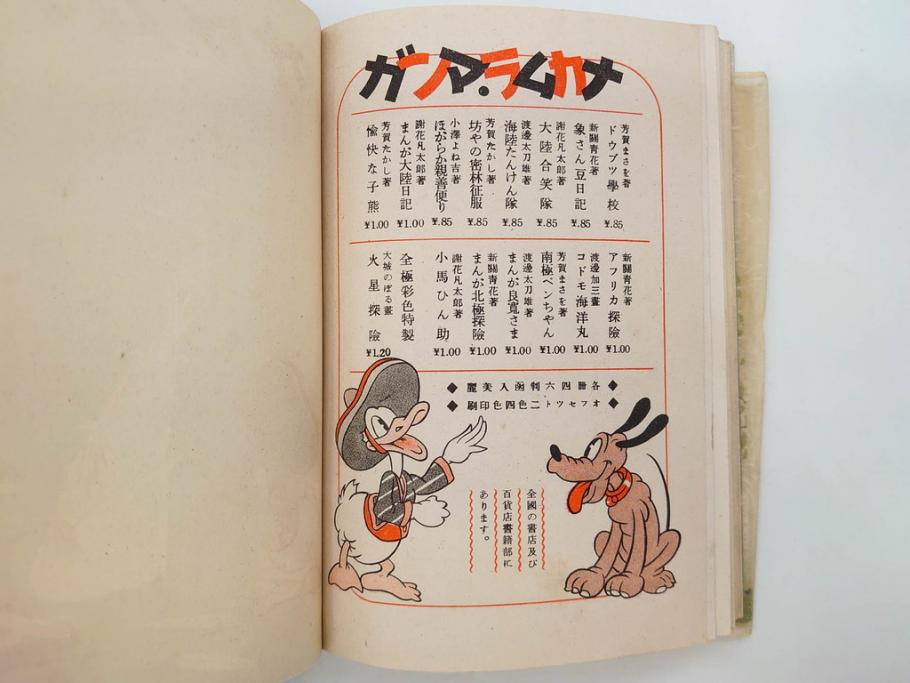 ナカムラ・マンガ
芳賀まさを著
ドウブツ學校
¥.85
新關青花著
象さん豆日記
¥.85
謝花凡太郎著
大陸合笑隊
¥.85
渡邊太刀雄著
海陸たんけん隊
¥.85
芳賀たかし著
坊やの密林征服
¥.85
小澤よね吉著
ほがらか親善便り
¥.85
謝花凡太郎著
まんが大陸日記
¥1.00
芳賀たかし著
愉快な子熊
¥1.00
新關青花著
アフリカ探險
¥1.00
渡邊加三畫
コドモ海洋丸
¥1.00
芳賀まさを著
南極ペンちやん
¥1.00
渡邊太刀雄著
まんが良寬さま
¥1.00
新關青花著
まんが北極探險
¥1.00
謝花凡太郎著
小馬ひん助
¥1.00
全極彩色特製
大城のぼる畫
火星探險
¥1.20
◆各冊四六判函入美麗◆
◆オフセツト二色四色印刷◆
全國の書店及び
百貨店書籍部に
あります。